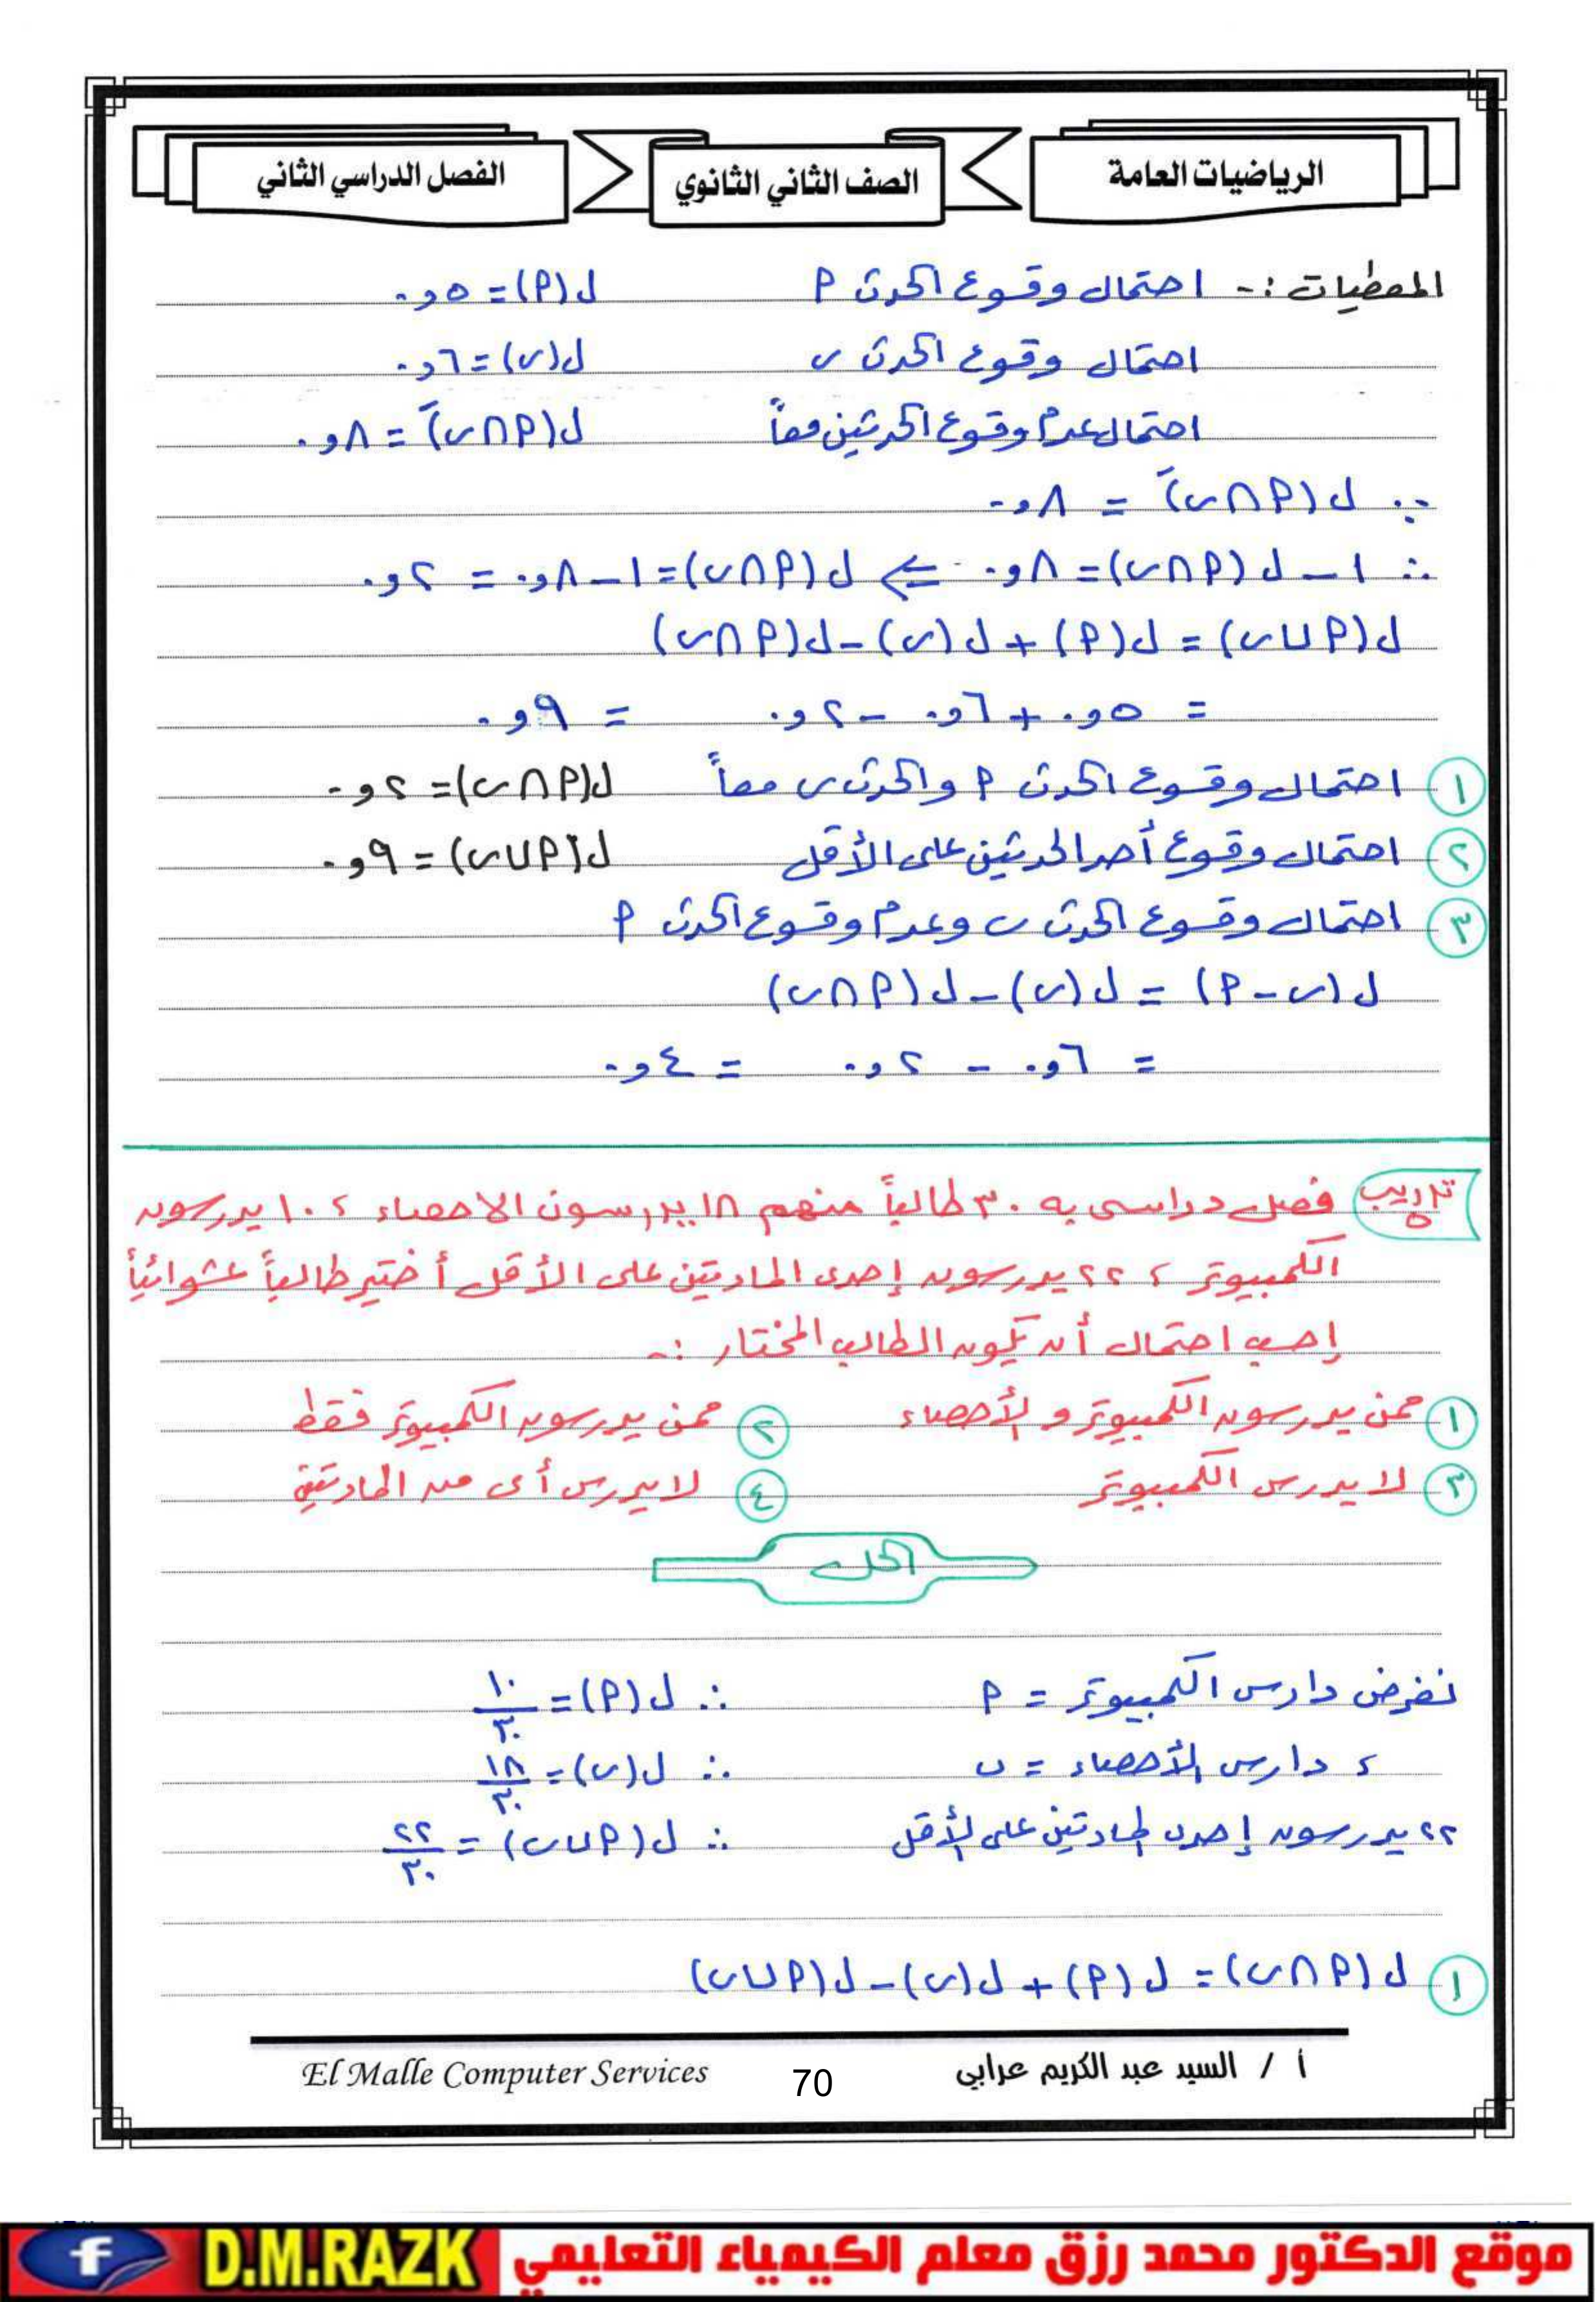 الرياضيات العامة
الصف الثاني الثانوي
الفصل الدراسي الثاني
المعطيات :- احتمال وقوع الحدث م ل(م) = ٥و٠
احتمال وقوع الحدث ب ل(ب) = ٦و٠
احتمال عدم وقوع الحدثين معاً ل(م∩ب)َ = ٨و٠
∵ ل(م∩ب)َ = ٨و٠
∴ ١ – ل(م∩ب) = ٨و٠ ⇐ ل(م∩ب) = ١ – ٨و٠ = ٢و٠
ل(م∪ب) = ل(م) + ل(ب) – ل(م∩ب)
= ٥و٠ + ٦و٠ – ٢و٠ = ٩و٠
١ احتمال وقوع الحدث م والحدث ب معاً ل(م∩ب) = ٢و٠
٢ احتمال وقوع أحد الحدثين على الأقل ل(م∪ب) = ٩و٠
٣ احتمال وقوع الحدث ب وعدم وقوع الحدث م
ل(ب – م) = ل(ب) – ل(م∩ب)
= ٦و٠ – ٢و٠ = ٤و٠
تدريب ٥ فصل دراسى به ٣٠ طالباً منهم ١٨ يدرسون الاحصاء ، ١٠ يدرسون
الكمبيوتر ، ٢٢ يدرسون إحدى المادتين على الأقل أختير طالباً عشوائياً
إحسب احتمال أن يكون الطالب المختار :-
١ ممن يدرسون الكمبيوتر و الأحصاء ٢ ممن يدرسون الكمبيوتر فقط
٣ لا يدرس الكمبيوتر ٤ لا يدرس أى من المادتين
الحل
نفرض دارس الكمبيوتر = م ∴ ل(م) = ١٠/٣٠
، دارس الأحصاء = ب ∴ ل(ب) = ١٨/٣٠
٢٢ يدرسون إحدى المادتين على الأقل ∴ ل(م∪ب) = ٢٢/٣٠
١ ل(م∩ب) = ل(م) + ل(ب) – ل(م∪ب)
أ / السيد عبد الكريم عرابي
70
El Malle Computer Services
موقع الدكتور محمد رزق معلم الكيمياء التعليمي D.M.RAZK f